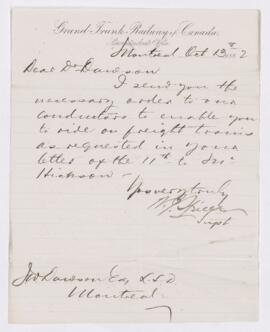 Grand Trunk Railway of Canada.
Superintendent's Office
Montreal Oct 13th 1882
Dear Dr Dawson
I send you the
necessary order to our
conductors to enable you
to ride on freight trains
as requested in your
letter of the 11th to Mr
Hickson —
Yours very truly
Supt
J W Dawson Esq L.L.D
Montreal